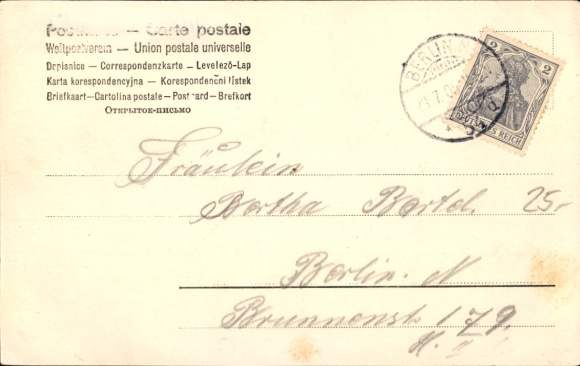 Postkarte – Carte postale
Weltpostverein – Union postale universelle
Dopisnice – Correspondenzkarte – Levelező-Lap
Karta korespondencyjna – Korespondenční lístek
Briefkaart – Cartolina postale – Post card – Brefkort
Открытое-письмо
BERLIN N
2 2
DEUTSCHES REICH
Fräulein
Bertha Bertel. 25.-
Berlin. N
Brunnenstr 179.
H.